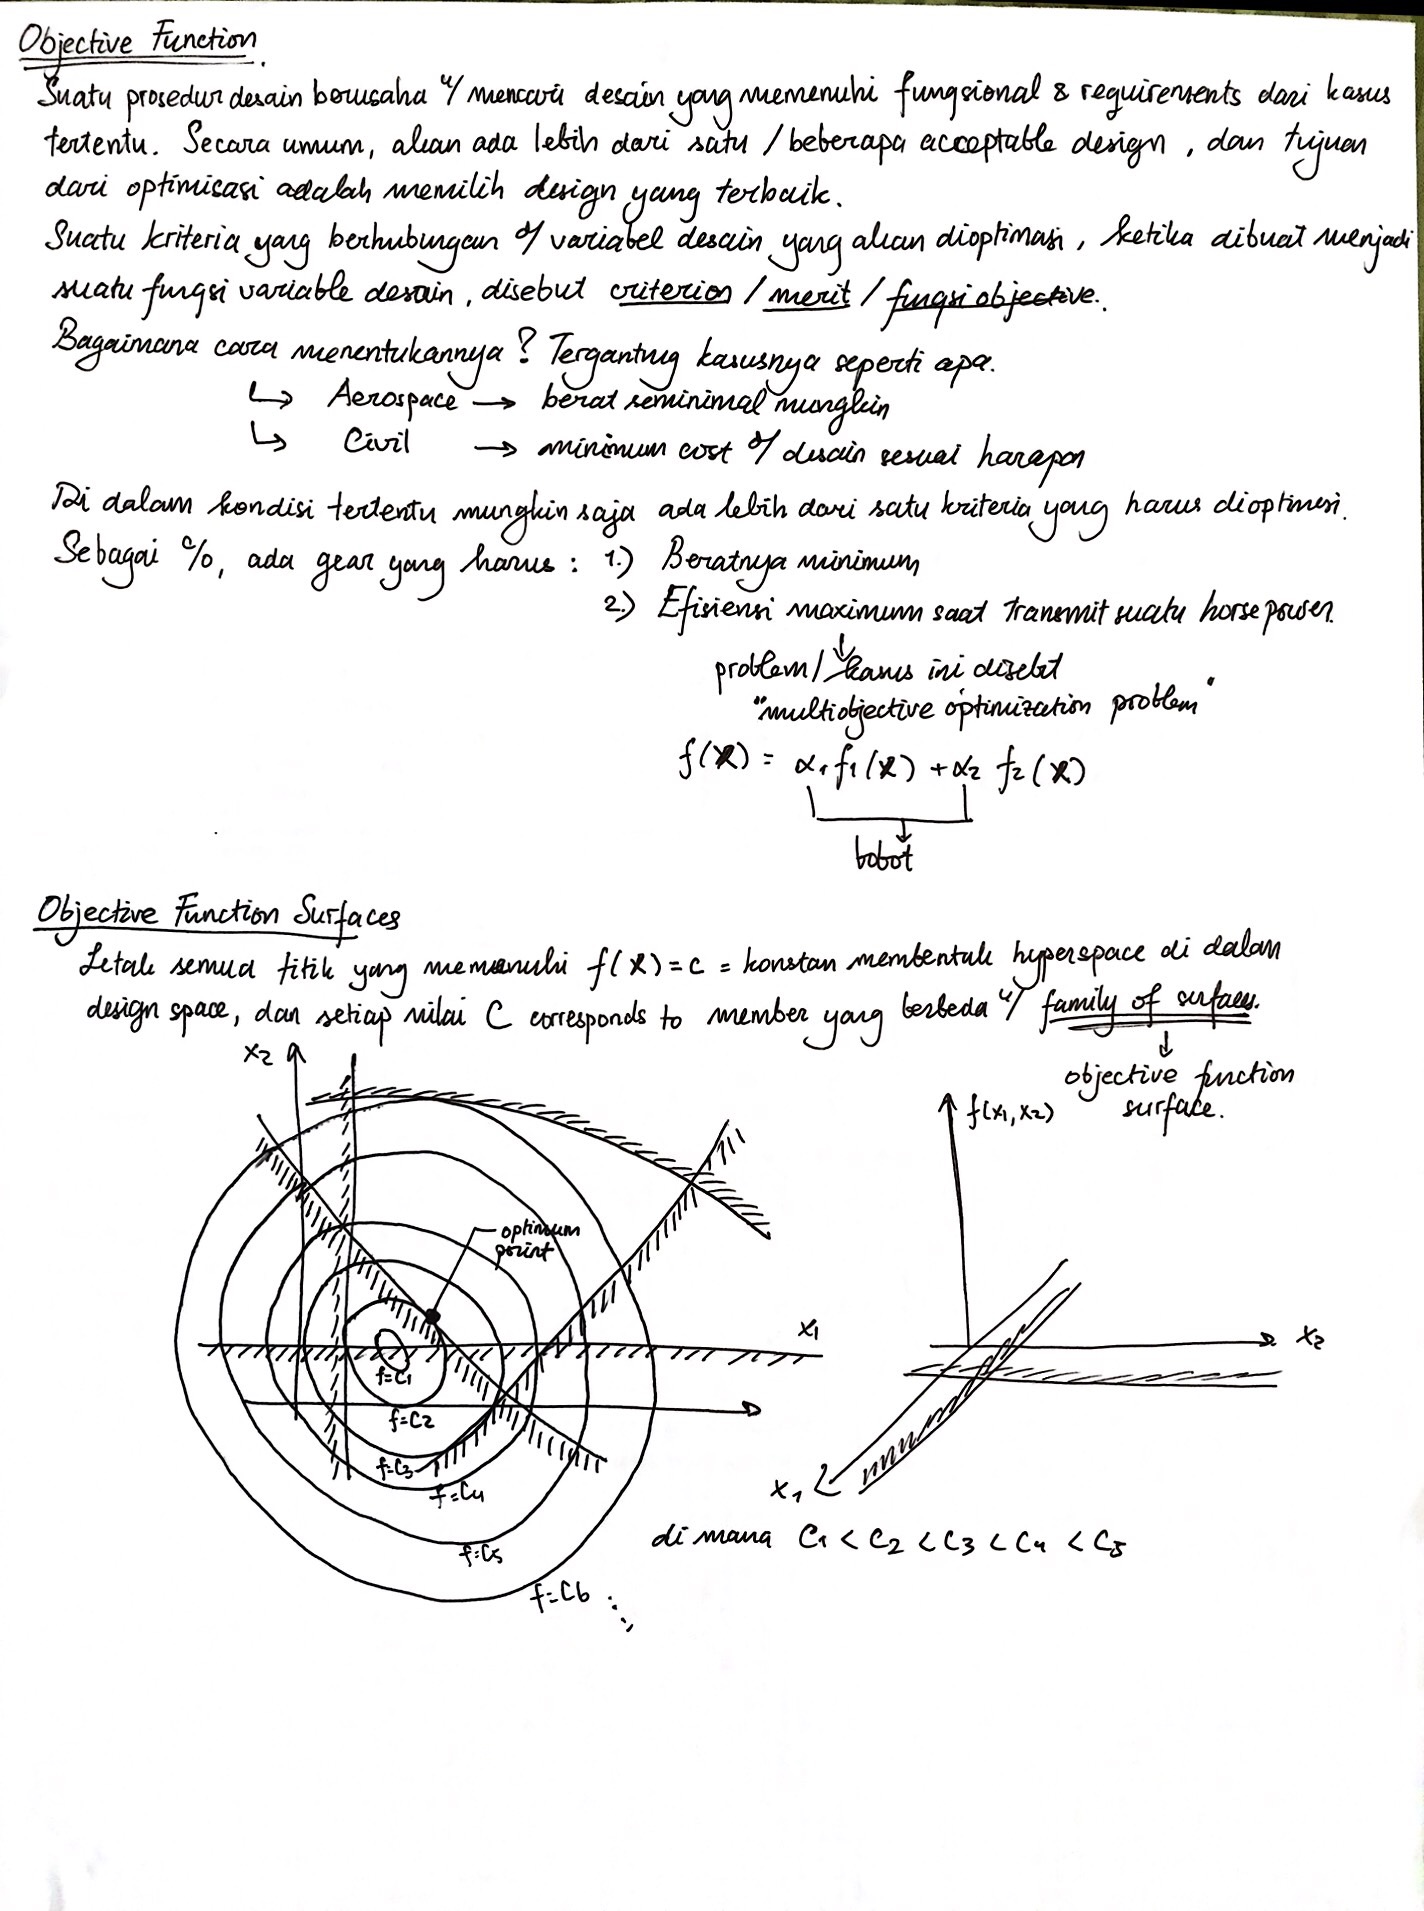 Objective Function.
Suatu prosedur desain berusaha u/ mencari desain yang memenuhi fungsional & requirements dari kasus
tertentu. Secara umum, akan ada lebih dari satu / beberapa acceptable design, dan tujuan
dari optimisasi adalah memilih design yang terbaik.
Suatu kriteria yang berhubungan d/ variabel desain yang akan dioptimasi, ketika dibuat menjadi
suatu fungsi variable desain, disebut criterion / merit / fungsi objective.
Bagaimana cara menentukannya? Tergantung kasusnya seperti apa.
↳ Aerospace → berat seminimal mungkin
↳ Civil → minimum cost d/ desain sesuai harapan
Di dalam kondisi tertentu mungkin saja ada lebih dari satu kriteria yang harus dioptimasi.
Sebagai c/o, ada gear yang harus : 1.) Beratnya minimum
2.) Efisiensi maximum saat transmit suatu horse power.
↓
problem / kasus ini disebut
"multiobjective optimization problem"
f(X) = α1 f1(X) + α2 f2(X)
↓
bobot
Objective Function Surfaces
Letak semua titik yang memenuhi f(X) = c = konstan membentuk hyperspace di dalam
design space, dan setiap nilai C corresponds to member yang berbeda u/ family of surfaces.
↓
objective function
surface.
x2
f(x1, x2)
optimum
point
x1
x2
f=C1
f=C2
f=C3
f=C4
x1
di mana C1 < C2 < C3 < C4 < C5
f=C5
f=C6